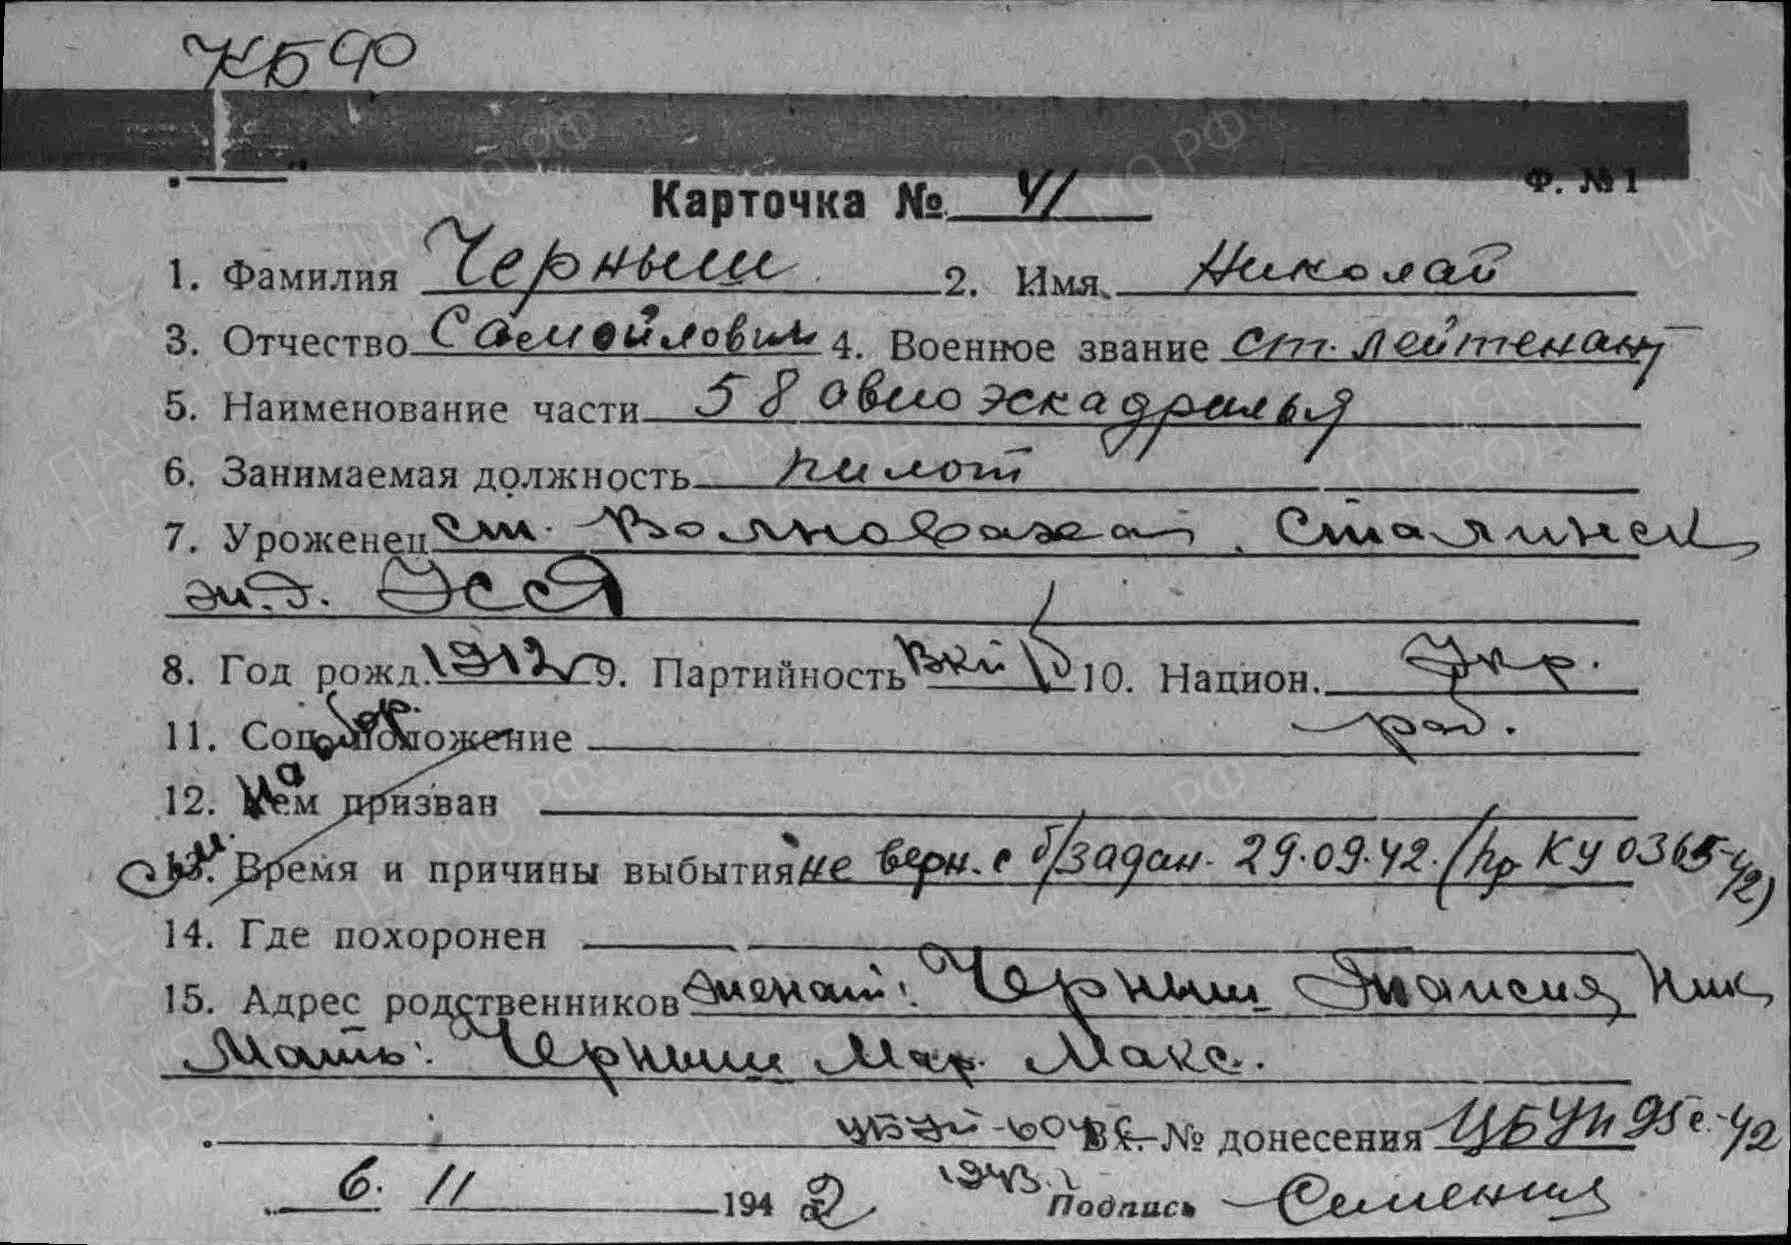 КБФ
Ф. №1
Карточка № 41
1. Фамилия Черныш 2. Имя Николай
3. Отчество Самойлович 4. Военное звание ст. лейтенант
5. Наименование части 58 авиоэскадрилья
6. Занимаемая должность пилот
7. Уроженец ст. Волноваха, Сталинск
ж.д. УССР
8. Год рожд. 1912 9. Партийность ВКП/б 10. Национ. Укр.
11. Соц. положение раб.
12. Кем призван
13. Время и причины выбытия не верн. с б/задан. 29.09.42. (пр КУ 0365-42)
14. Где похоронен
15. Адрес родственников женат: Черныш Таисия Ник
Мать: Черныш Мар. Макс.
Вх. № донесения ЦБУП 95с-42
6. 11 1942 1943 Подпись